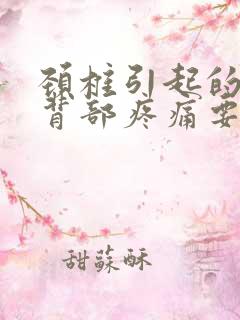 颈柱引起的
背部疼痛要
甜蘇酥